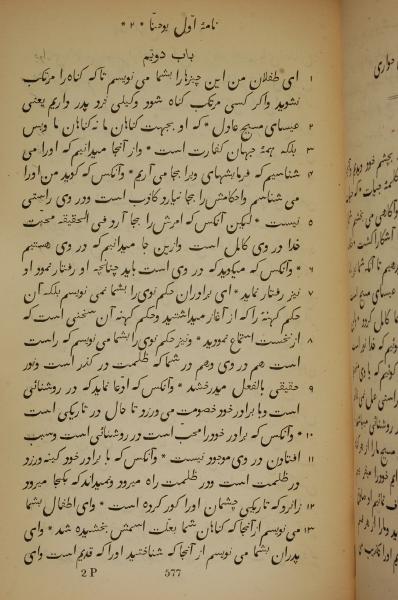 نامهٔ اول یوحنا * ۲ *
باب دویم
۱ ای طفلان من این چیزها را بشما می نویسم تا که گناه را مرتکب
نشوید واکر کسی مرتکب کناه شود وکیلی نزد پدر داریم یعنی
۲ عیسای مسیح عادل * که او بجهت کناهان ما نه کناهان ما وبس
۳ بلکه همهٔ جهان کفارت است * واز آنجا میدانیم که اورا می
۴ شناسیم که فرمایشهای ویرا بجا می آریم * وآنکس که کوید من اورا
می شناسم واحکامش را بجا نیارد کاذب است ودر وی راستی
۵ نیست * لیکن آنکس که امرش را بجا آرد فی الحقیقه محبت
خدا در وی کامل است وازین جا میدانیم که در وی هستیم
۶ * وآنکس که میکوید که در وی است باید چنانچه او رفتار نمود او
۷ نیز رفتار نماید * ای برادران حکم نوی را بشما نمی نویسم بلکه آن
حکم کهنه را که از آغاز میداشتید وحکم کهنه آن سخنی است که
۸ از نخست استماع نمودید * ونیز حکم نوی را بشما می نویسم که راست
است هم در وی وهم در شما که ظلمت در کذر است ونور
۹ حقیقی بالفعل میدرخشد * وآنکس که ادعا نماید که در روشنائی
است وبا برادر خود خصومت می ورزد تا حال در تاریکی است
۱۰ * وآنکس که برادر خود را محب است در روشنائی است وسبب
۱۱ افتادن در وی موجود نیست * وآنکس که با برادر خود کینه ورزد
در ظلمت است ودر ظلمت راه میرود ونمیداند که بکجا میرود
۱۲ زانرو که تاریکی چشمان اورا کور کرده است * وای اطفال بشما
۱۳ می نویسم از آنجا که کناهان شما بعلت اسمش بخشیده شد * وای
پدران بشما می نویسم از آنجا که شناختید اورا که قدیم است وای
2 P 577